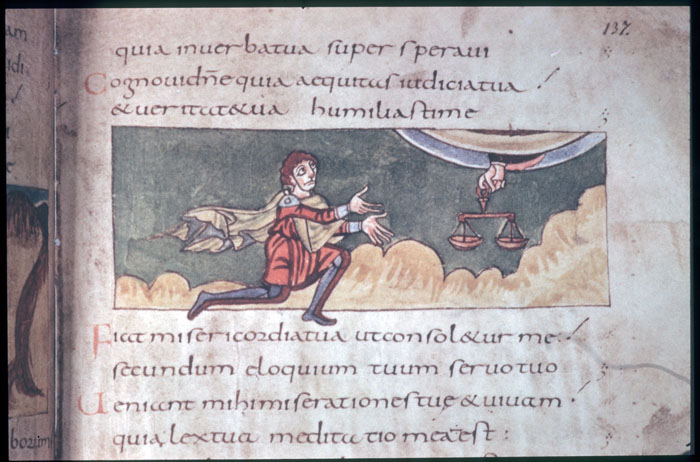 137.
quia inuerbatua super speraui
Cognouidñe quia aequitas iudiciatua
&ueritat&ua humiliastime
Fiat misericordiatua utconsol&ur me
secundum eloquium tuum seruotuo
Ueniant mihimiserationestue & uiuam
quia lextua meditatio meaest:
am
idi
borum